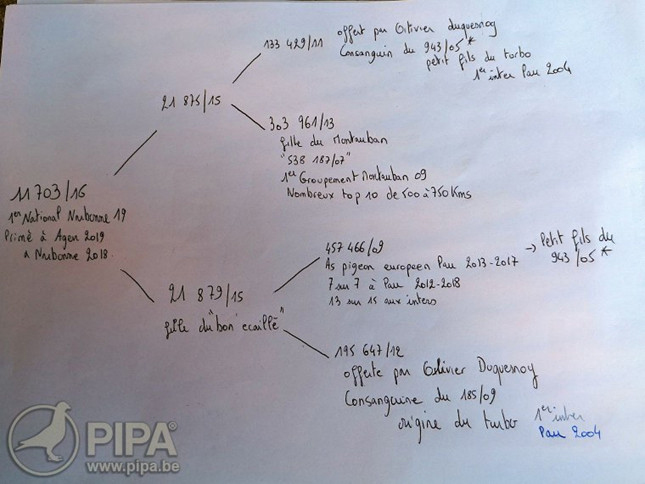 133 429/11
offert par Olivier Duquesnoy
Consanguin du 943/05 *
petit fils du turbo
1er inter Pau 2004
21 875/15
303 961/13
fille du Montauban
"538 187/07"
1er Groupement Montauban 09
Nombreux top 10 de 500 à 750 Kms
11 703/16
1er National Narbonne 19
Primé à Agen 2019
à Narbonne 2018.
457 466/09
As pigeon europaen Pau 2013-2017
7 sur 7 à Pau 2012-2018
13 sur 15 aux inters
→ Petit fils du
943/05 *
21 879/15
fille du "bon écaillé"
195 647/12
offerte par Olivier Duquesnoy
Consanguine du 185/09
origine du turbo
1er inter
Pau 2004
PIPA
www.pipa.be